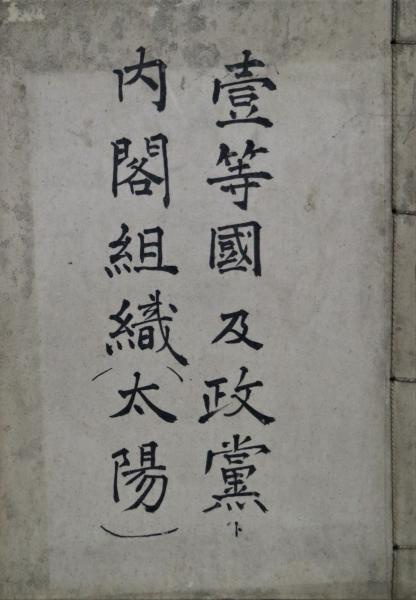 壹等國及政黨ト
內閣組織(太陽)